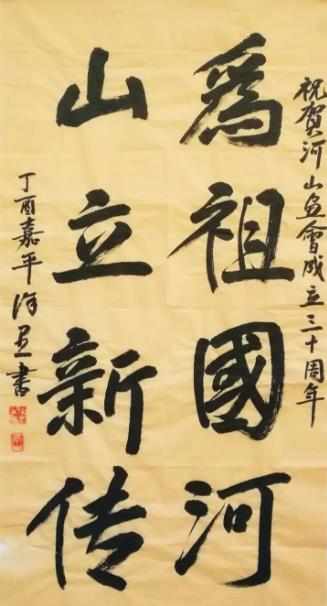 祝贺河山画會成立三十周年
為祖國河
山立新传
丁酉嘉平
書